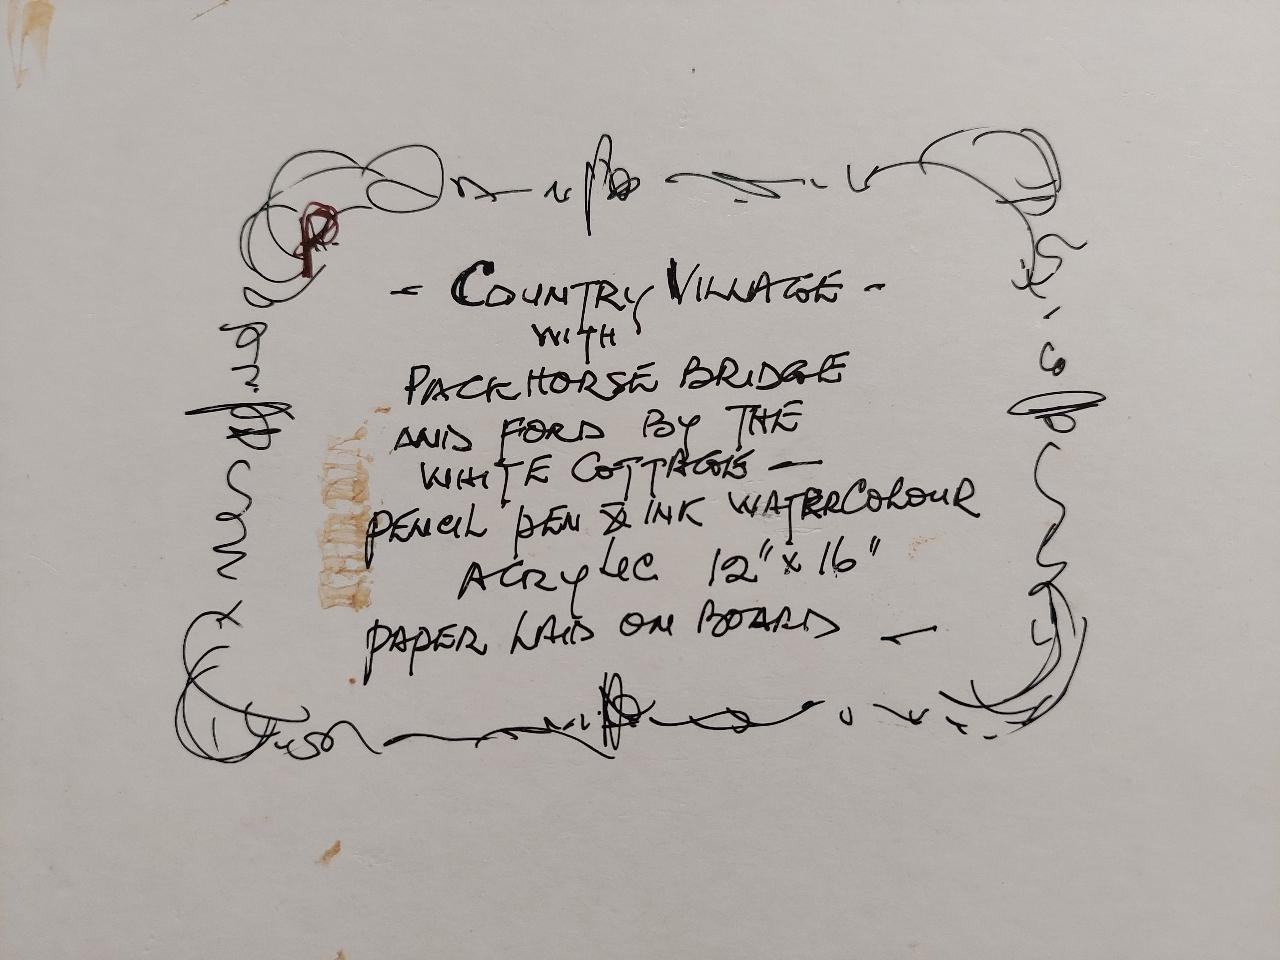 - COUNTRY VILLAGE -
WITH
PACKHORSE BRIDGE
AND FORD BY THE
WHITE COTTAGE —
PENCIL PEN & INK WATERCOLOUR
ACRYLIC 12" x 16"
PAPER LAID ON BOARD —